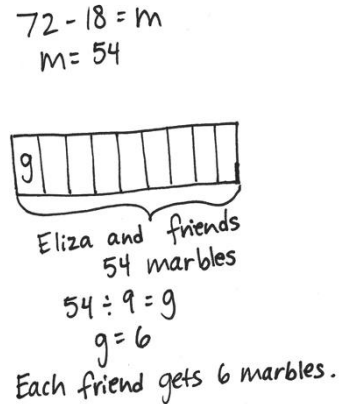 72 - 18 = m
m = 54
g
Eliza and friends
54 marbles
54 ÷ 9 = g
g = 6
Each friend gets 6 marbles.